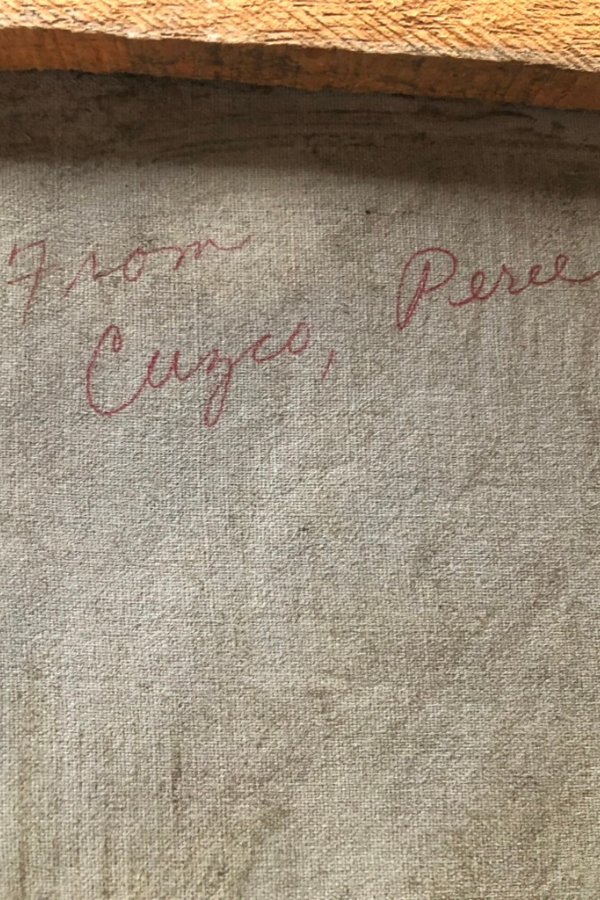 From
Cuzco, Peru